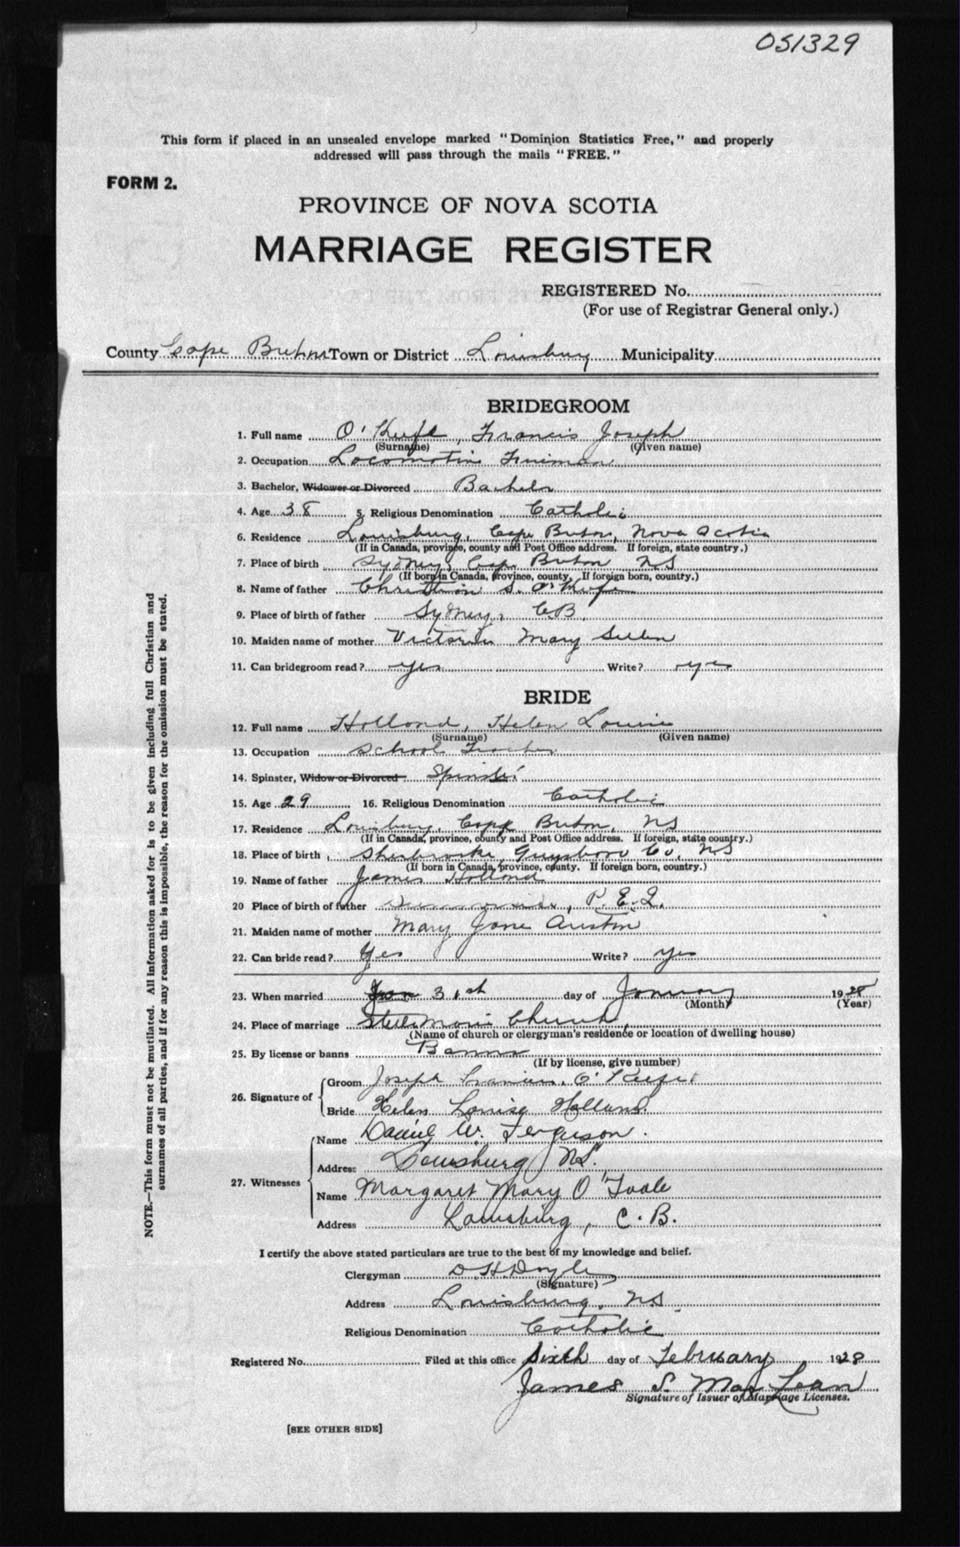 OS1329
This form if placed in an unsealed envelope marked "Dominion Statistics Free," and properly
addressed will pass through the mails "FREE."
FORM 2.
PROVINCE OF NOVA SCOTIA
MARRIAGE REGISTER
REGISTERED No.
(For use of Registrar General only.)
County Cape Breton Town or District Louisburg Municipality
BRIDEGROOM
1. Full name O'Keefe, Francis Joseph
(Surname) (Given name)
2. Occupation Locomotive Fireman
3. Bachelor, Widower or Divorced Bachelor
4. Age 38 5. Religious Denomination Catholic
6. Residence Louisburg, Cape Breton, Nova Scotia
(If in Canada, province, county and Post Office address. If foreign, state country.)
7. Place of birth Sydney, Cape Breton NS
(If born in Canada, province, county, If foreign born, country.)
8. Name of father Christian S. O'Keefe
9. Place of birth of father Sydney, CB.
10. Maiden name of mother Victoria Mary
11. Can bridegroom read? yes Write? yes
BRIDE
12. Full name Holland, Helen Louise
(Surname) (Given name)
13. Occupation School Teacher
14. Spinster, Widow or Divorced Spinster
15. Age 29 16. Religious Denomination Catholic
17. Residence Louisburg, Cape Breton, NS
(If in Canada, province, county and Post Office address. If foreign, state country.)
18. Place of birth Sherbrooke Guysboro Co, NS
(If born in Canada, province, county. If foreign born, country.)
19. Name of father James Holland
20 Place of birth of father P.E.I.
21. Maiden name of mother Mary Jane Austin
22. Can bride read? Yes Write? yes
23. When married 31st day of January 1928
(Month) (Year)
24. Place of marriage Stella Maris Church,
(Name of church or clergyman's residence or location of dwelling house)
25. By license or banns Banns
(If by license, give number)
26. Signature of Groom Joseph Francis O'Keefe
Bride Helen Louise Holland
27. Witnesses Name Daniel W. Ferguson.
Address Louisburg NS.
Name Margaret Mary O'Toole
Address Louisburg, C.B.
I certify the above stated particulars are true to the best of my knowledge and belief.
Clergyman D H Doyle
(Signature)
Address Louisburg, NS
Religious Denomination Catholic
Registered No. Filed at this office Sixth day of February 1928
James S. MacLean
Signature of Issuer of Marriage Licenses.
[SEE OTHER SIDE]
NOTE.—This form must not be mutilated. All information asked for is to be given including full Christian and
surnames of all parties, and if for any reason this is impossible, the reason for the omission must be stated.